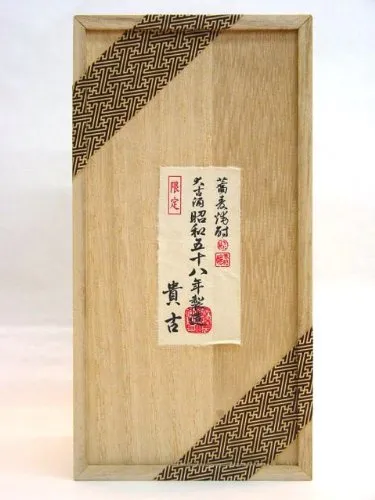 蕎麦焼酎
大古酒昭和五十八年製造
貴古
限定